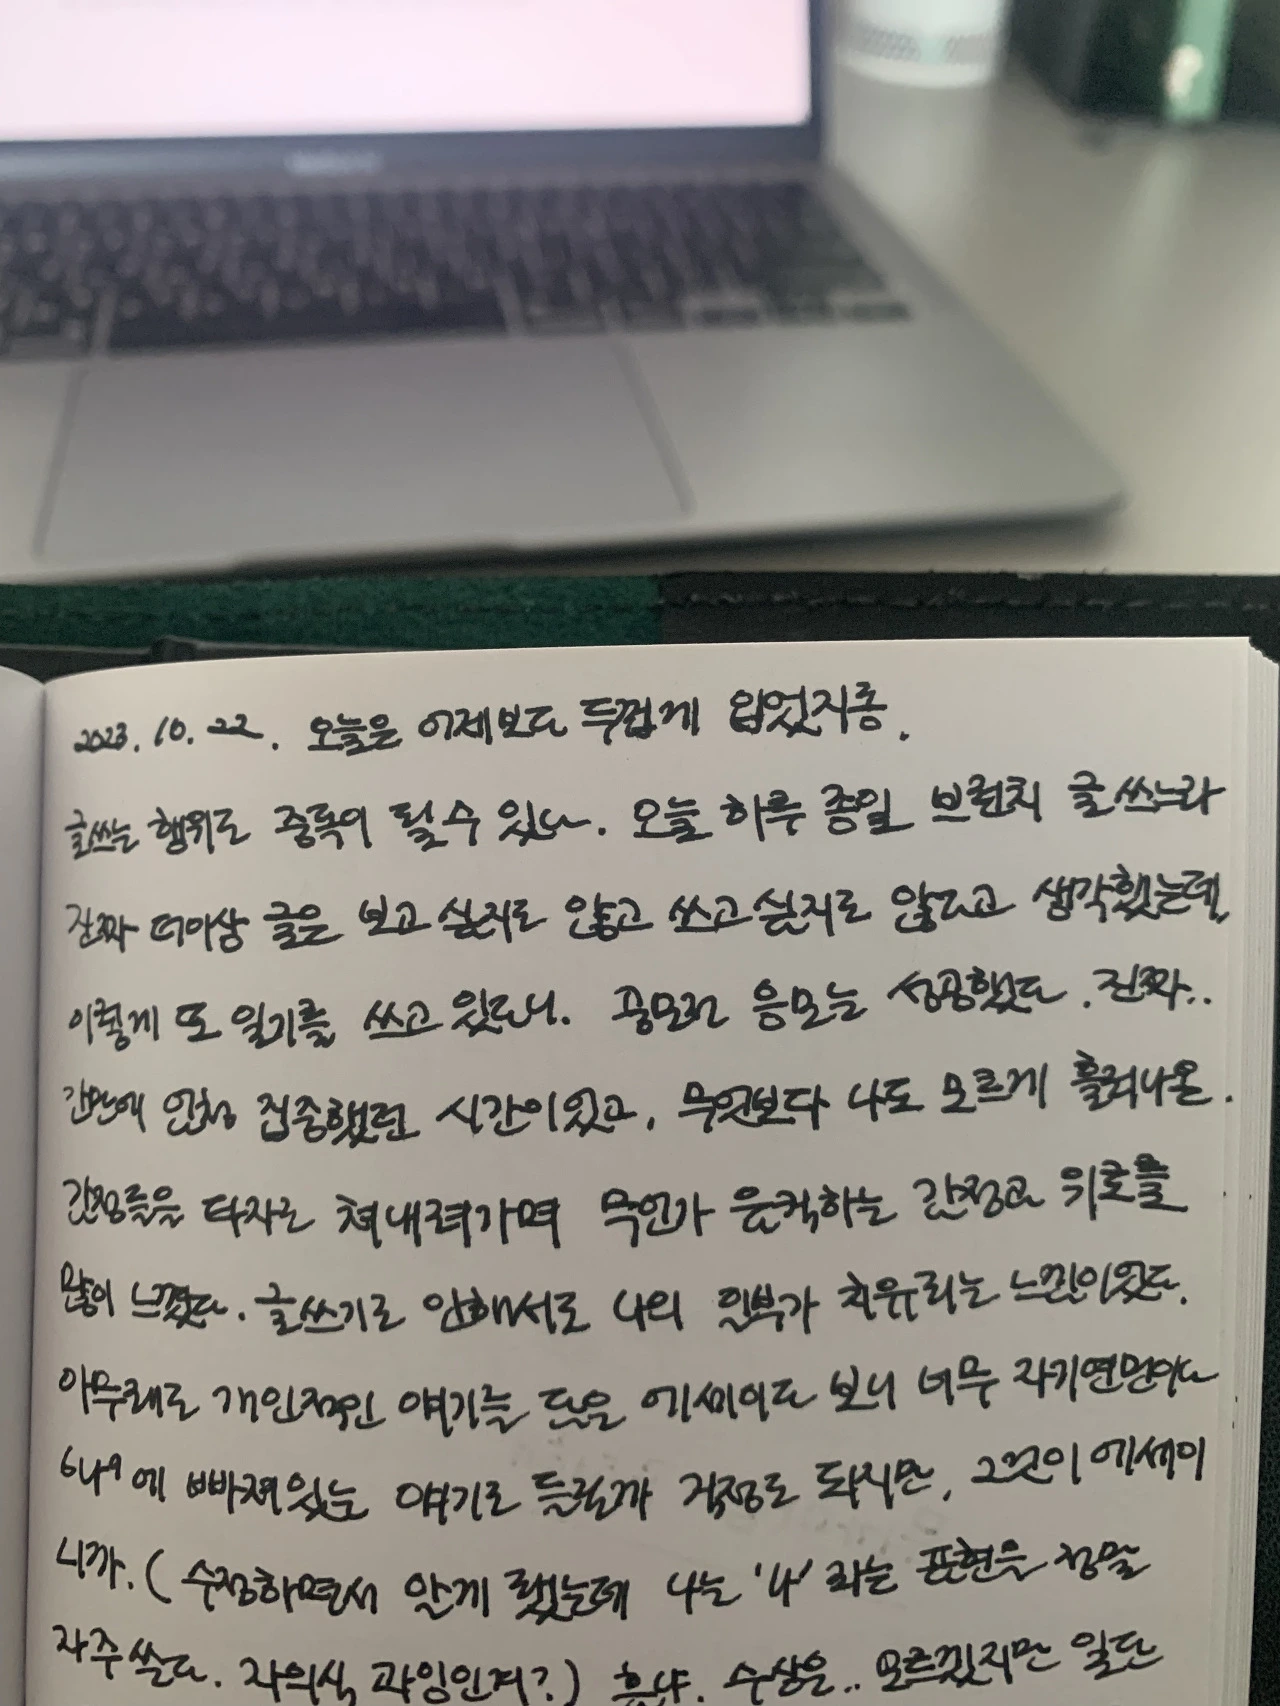 2023. 10. 22. 오늘은 어제보다 두껍게 입었지롱.
글쓰는 행위도 중독이 될 수 있다. 오늘 하루 종일 브런치 글 쓰느라
진짜 더이상 글은 보고 싶지도 않고 쓰고 싶지도 않다고 생각했는데,
이렇게 또 일기를 쓰고 있다니. 공모전 응모는 성공했다. 진짜..
간만에 엄청 집중했던 시간이었고, 무엇보다 나도 모르게 흘러나온
감정들을 타자로 쳐내려가며 무언가 울컥하는 감정과 위로를
많이 느꼈다. 글쓰기로 인해서도 나의 일부가 치유되는 느낌이었다.
아무래도 개인적인 얘기를 담은 에세이다 보니 너무 자기연민이나
에 빠져있는 얘기로 들릴까 걱정도 되지만, 그것이 에세이
니까. ( 수정하면서 알게 됐는데 나는 '나' 라는 표현을 정말
자주 쓴다. 자의식 과잉인가?) 흐.. 수상은.. 모르겠지만 일단